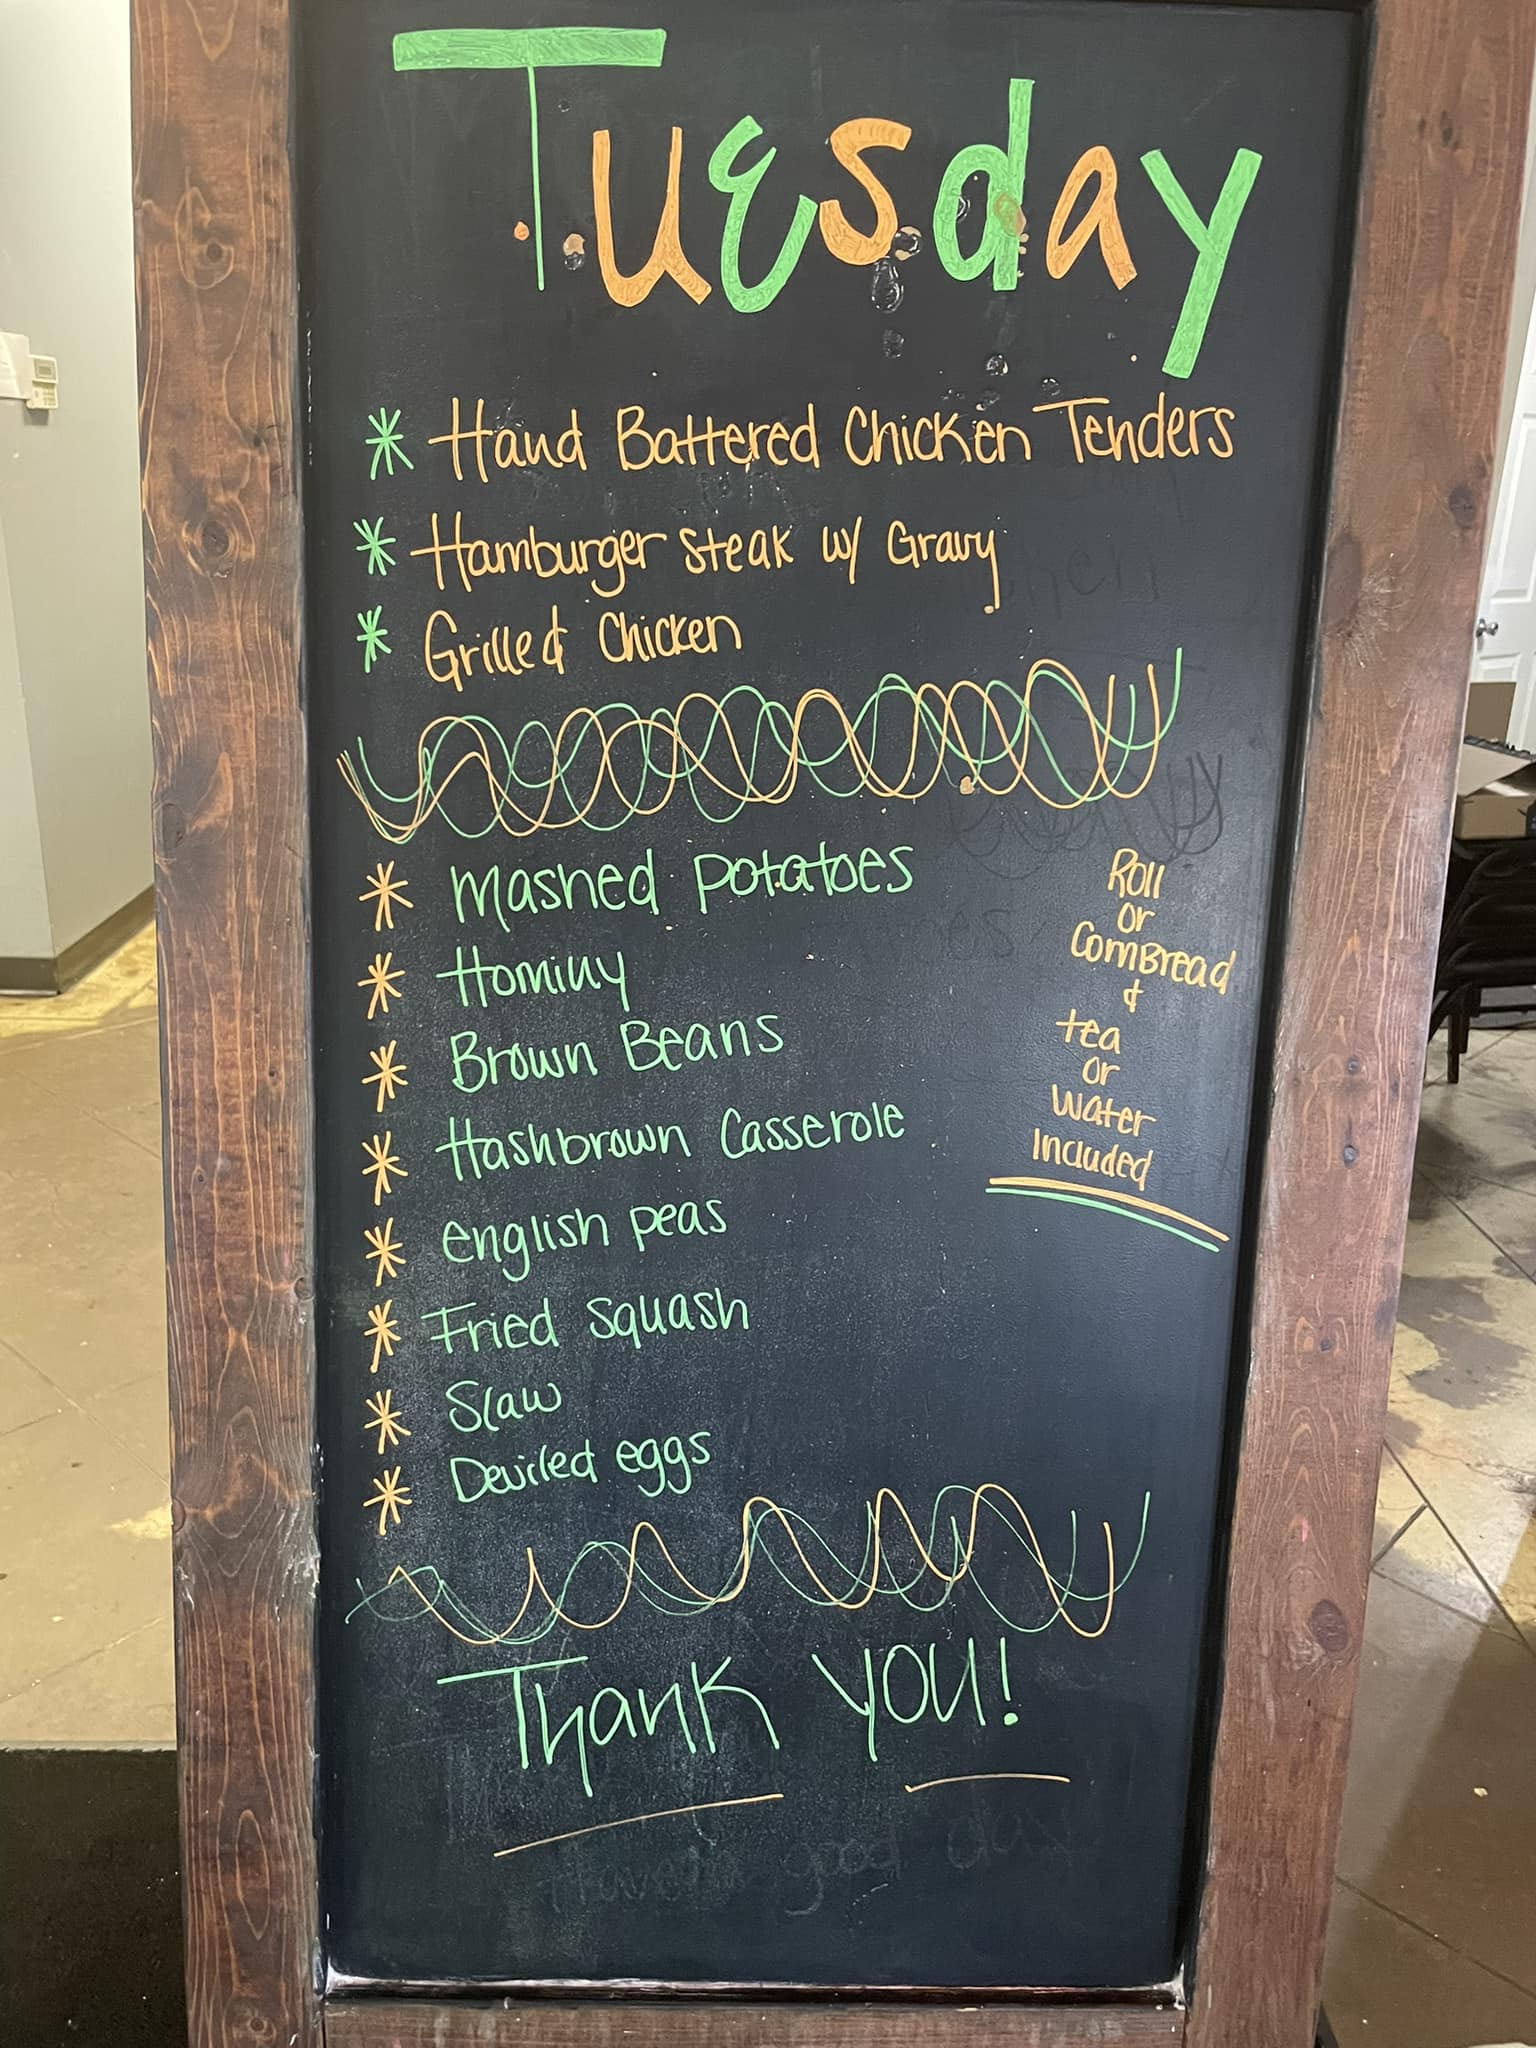 Tuesday
* Hand Battered Chicken Tenders
* Hamburger Steak w/ Gravy
* Grilled Chicken
* Mashed Potatoes
* Hominy
* Brown Beans
* Hashbrown Casserole
* english peas
* Fried Squash
* Slaw
* Deviled eggs
Roll
or
CornBread
&
tea
or
Water
Included
Thank you!
good day